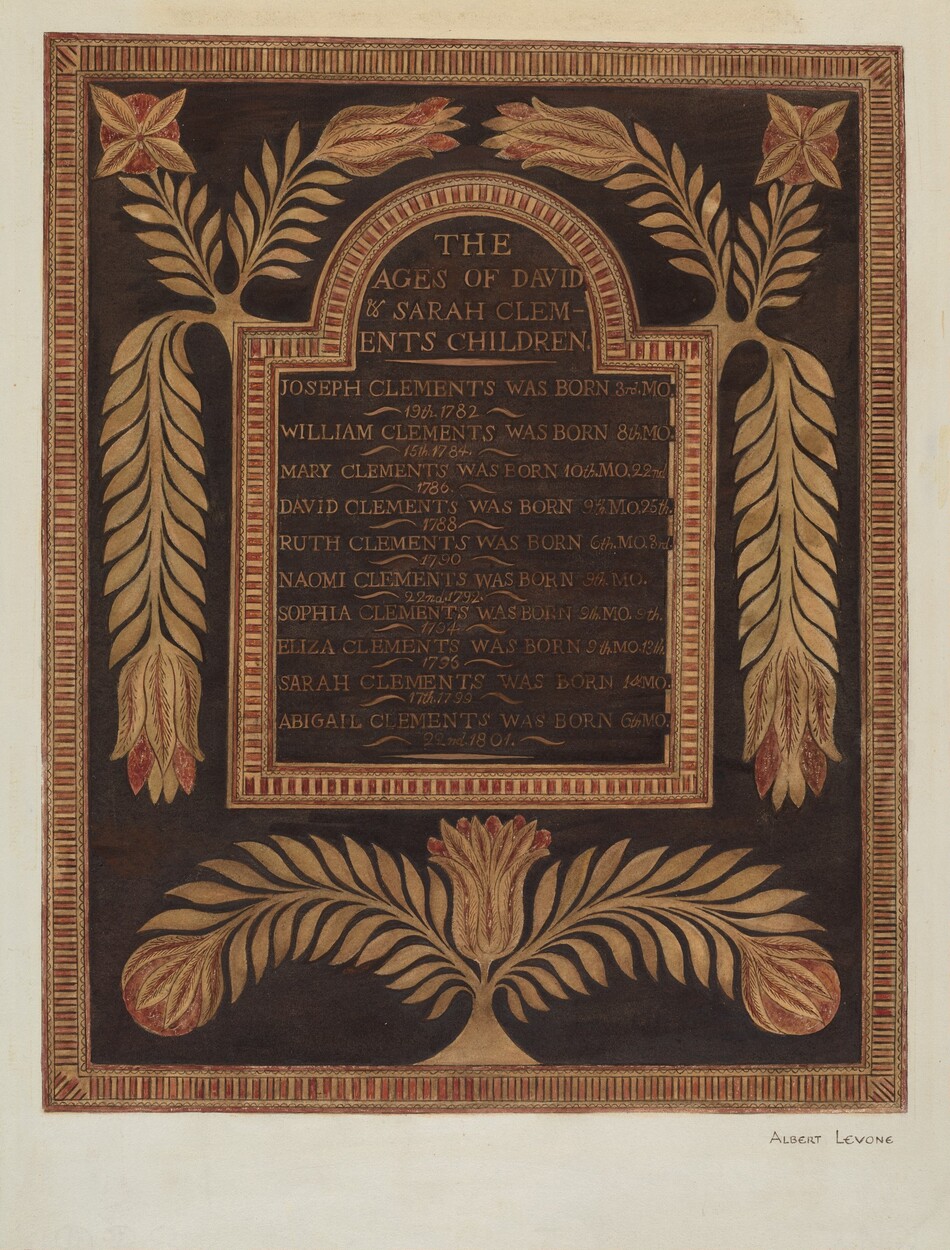 THE
AGES OF DAVID
& SARAH CLEM-
ENTS CHILDREN.
JOSEPH CLEMENTS WAS BORN 3rd.MO.
19th.1782
WILLIAM CLEMENTS WAS BORN 8th.MO.
15th.1784.
MARY CLEMENTS WAS BORN 10th.MO.22nd
1786.
DAVID CLEMENTS WAS BORN 9th.MO.25th.
1788
RUTH CLEMENTS WAS BORN 6th.MO.3rd.
1790
NAOMI CLEMENTS WAS BORN 9th.MO.
22nd.1792.
SOPHIA CLEMENTS WAS BORN 9th.MO.
1794
ELIZA CLEMENTS WAS BORN 9th.MO.13th.
1796
SARAH CLEMENTS WAS BORN 1st.MO.
17th.1799
ABIGAIL CLEMENTS WAS BORN 6th.MO.
22nd.1801.
ALBERT LEVONE